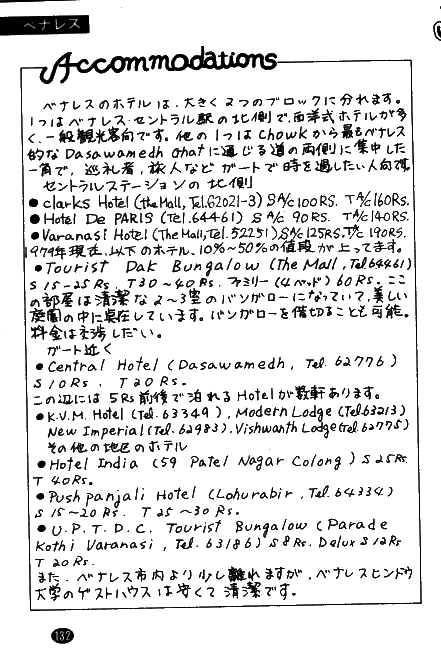 ベナレス
Accommodations
ベナレスのホテルは、大きく2つのブロックに分れます。
1つはベナレス・セントラル駅の北側で、西洋式ホテルが多
く、一般観光客向です。他の1つはchowkから最もベナレス
的なDasawamedh Ghatに通じる道の両側に集中した
一角で、巡礼者、旅人などガートで時を過したい人向です。
セントラルステーションの北側
●clarks Hotel (the Mall, Tel.62021-3) S A/c 100RS. T A/c 160Rs.
●Hotel De PARIS (Tel.64461) S A/c 90RS. T A/c 140RS.
●Varanasi Hotel (The Mall, Tel.52251) S A/c 125RS. T A/c 190RS.
1979年現在、以下のホテル、10%~50%の値段が上ってます。
●Tourist Dak Bungalow (The Mall, Tel.64461)
S 15-25Rs T30~40Rs. ファミリー(4ベッド) 60Rs. ここ
の部屋は清潔な2~3室のバンガローになっていて、美しい
庭園の中に点在しています。バンガローを借切ることも可能。
料金は交渉しだい。
ガート近く
●Central Hotel (Dasawamedh, Tel. 62776)
S 10Rs, T 20Rs.
この辺には5Rs前後で泊れるHotelが数軒あります。
●K.V.M. Hotel (Tel. 63349), Modern Lodge (Tel.63213)
New Imperial (Tel. 62983). Vishwanth Lodge (Tel.62775)
その他の地区のホテル
●Hotel India (59 Patel Nagar Colong) S 25Rs.
T 40Rs.
●Pushpanjali Hotel (Lohurabir, Tel. 64334)
S 15~20Rs. T 25~30Rs.
●U.P.T.D.C. Tourist Bungalow (Parade
Kothi Varanasi, Tel. 63186) S 8Rs. Delux S 12Rs
T 20Rs.
また、ベナレス市内より少し離れますが、ベナレスヒンドウ
大学のゲストハウスは安くて清潔です。
132